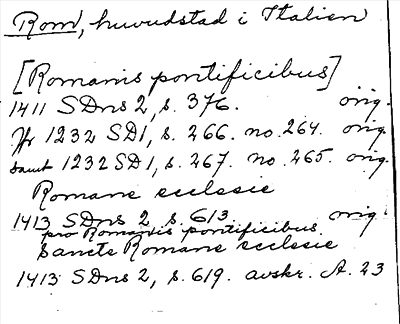 Rom, huvudstad i Italien
[Romanis pontificibus]
1411 SDns 2, s. 376. orig.
Jfr 1232 SD1, s. 266. no. 264. orig.
samt 1232 SD1, s. 267. no. 265. orig.
Romane ecclesie
1413 SDns 2 s. 613. orig.
pro Romanis pontificibus
Sancte Romane ecclesie
1413 SDns 2, s. 619. avskr. A. 23